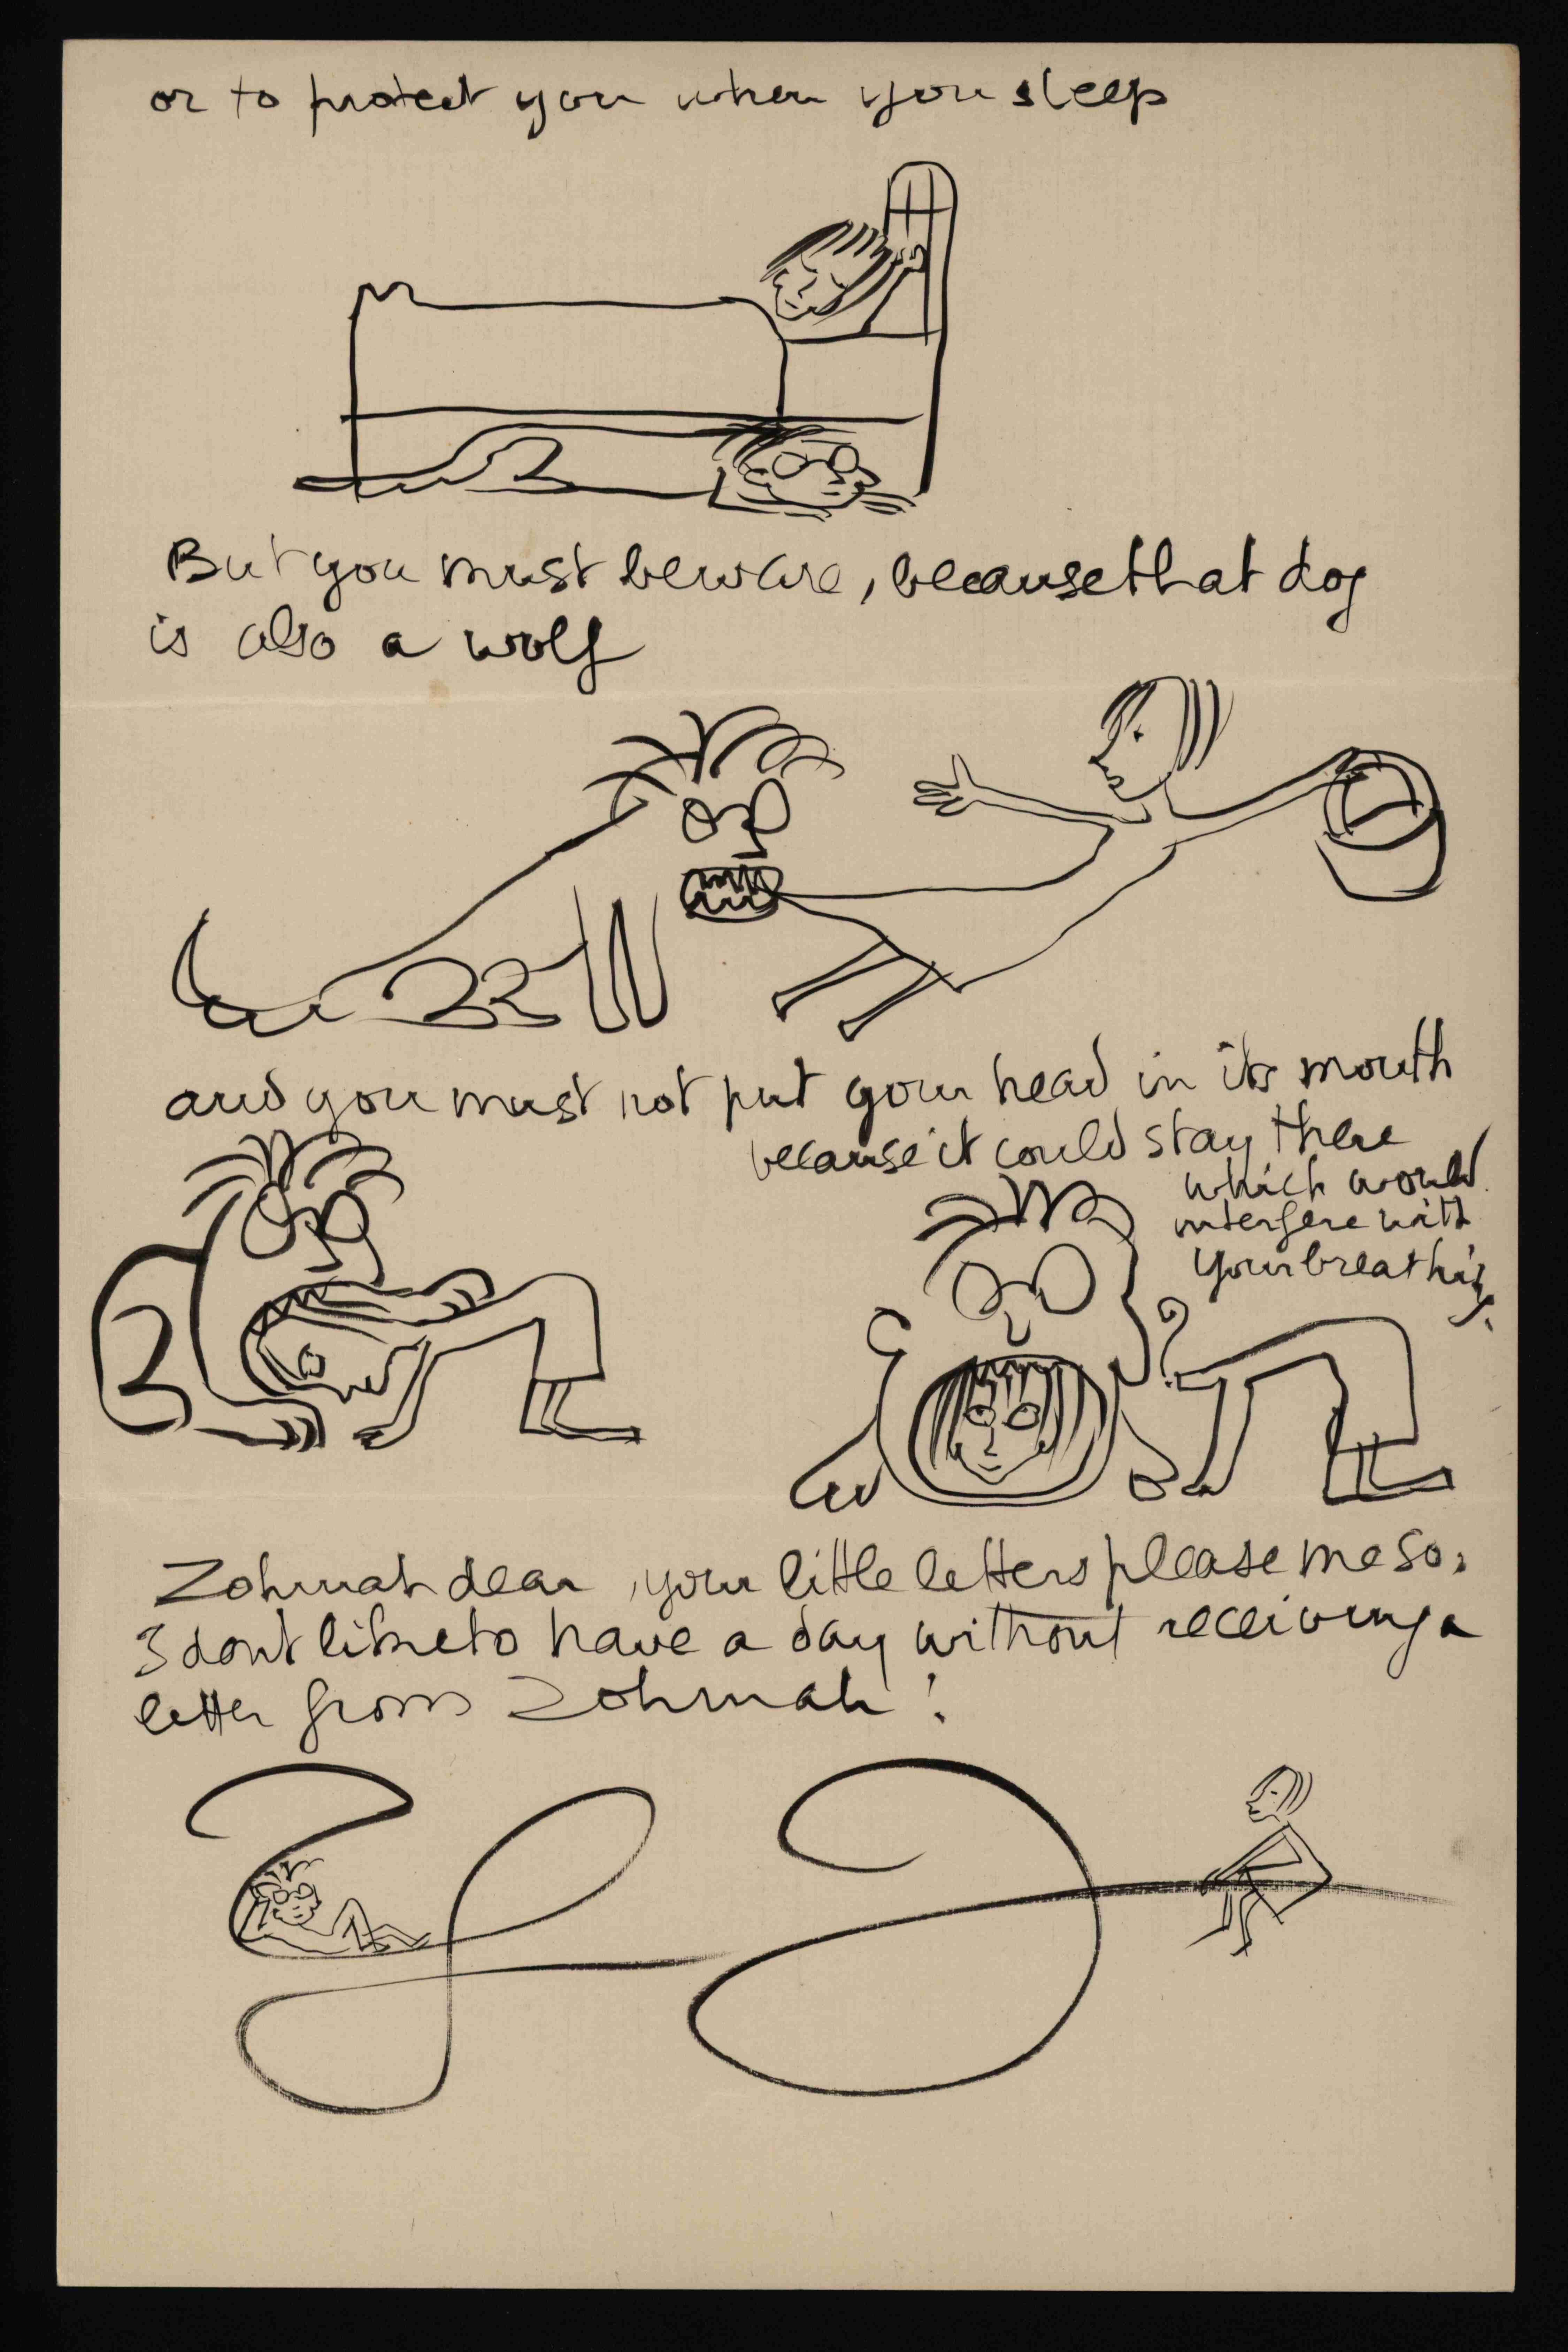 or to protect you when you sleep
But you must beware, because that dog
is also a wolf
and you must not put your head in its mouth
because it could stay there
which would
interfere with
your breathing.
Zohmah dear, your little letters please me so,
I dont like to have a day without receiving a
letter from Zohmah!